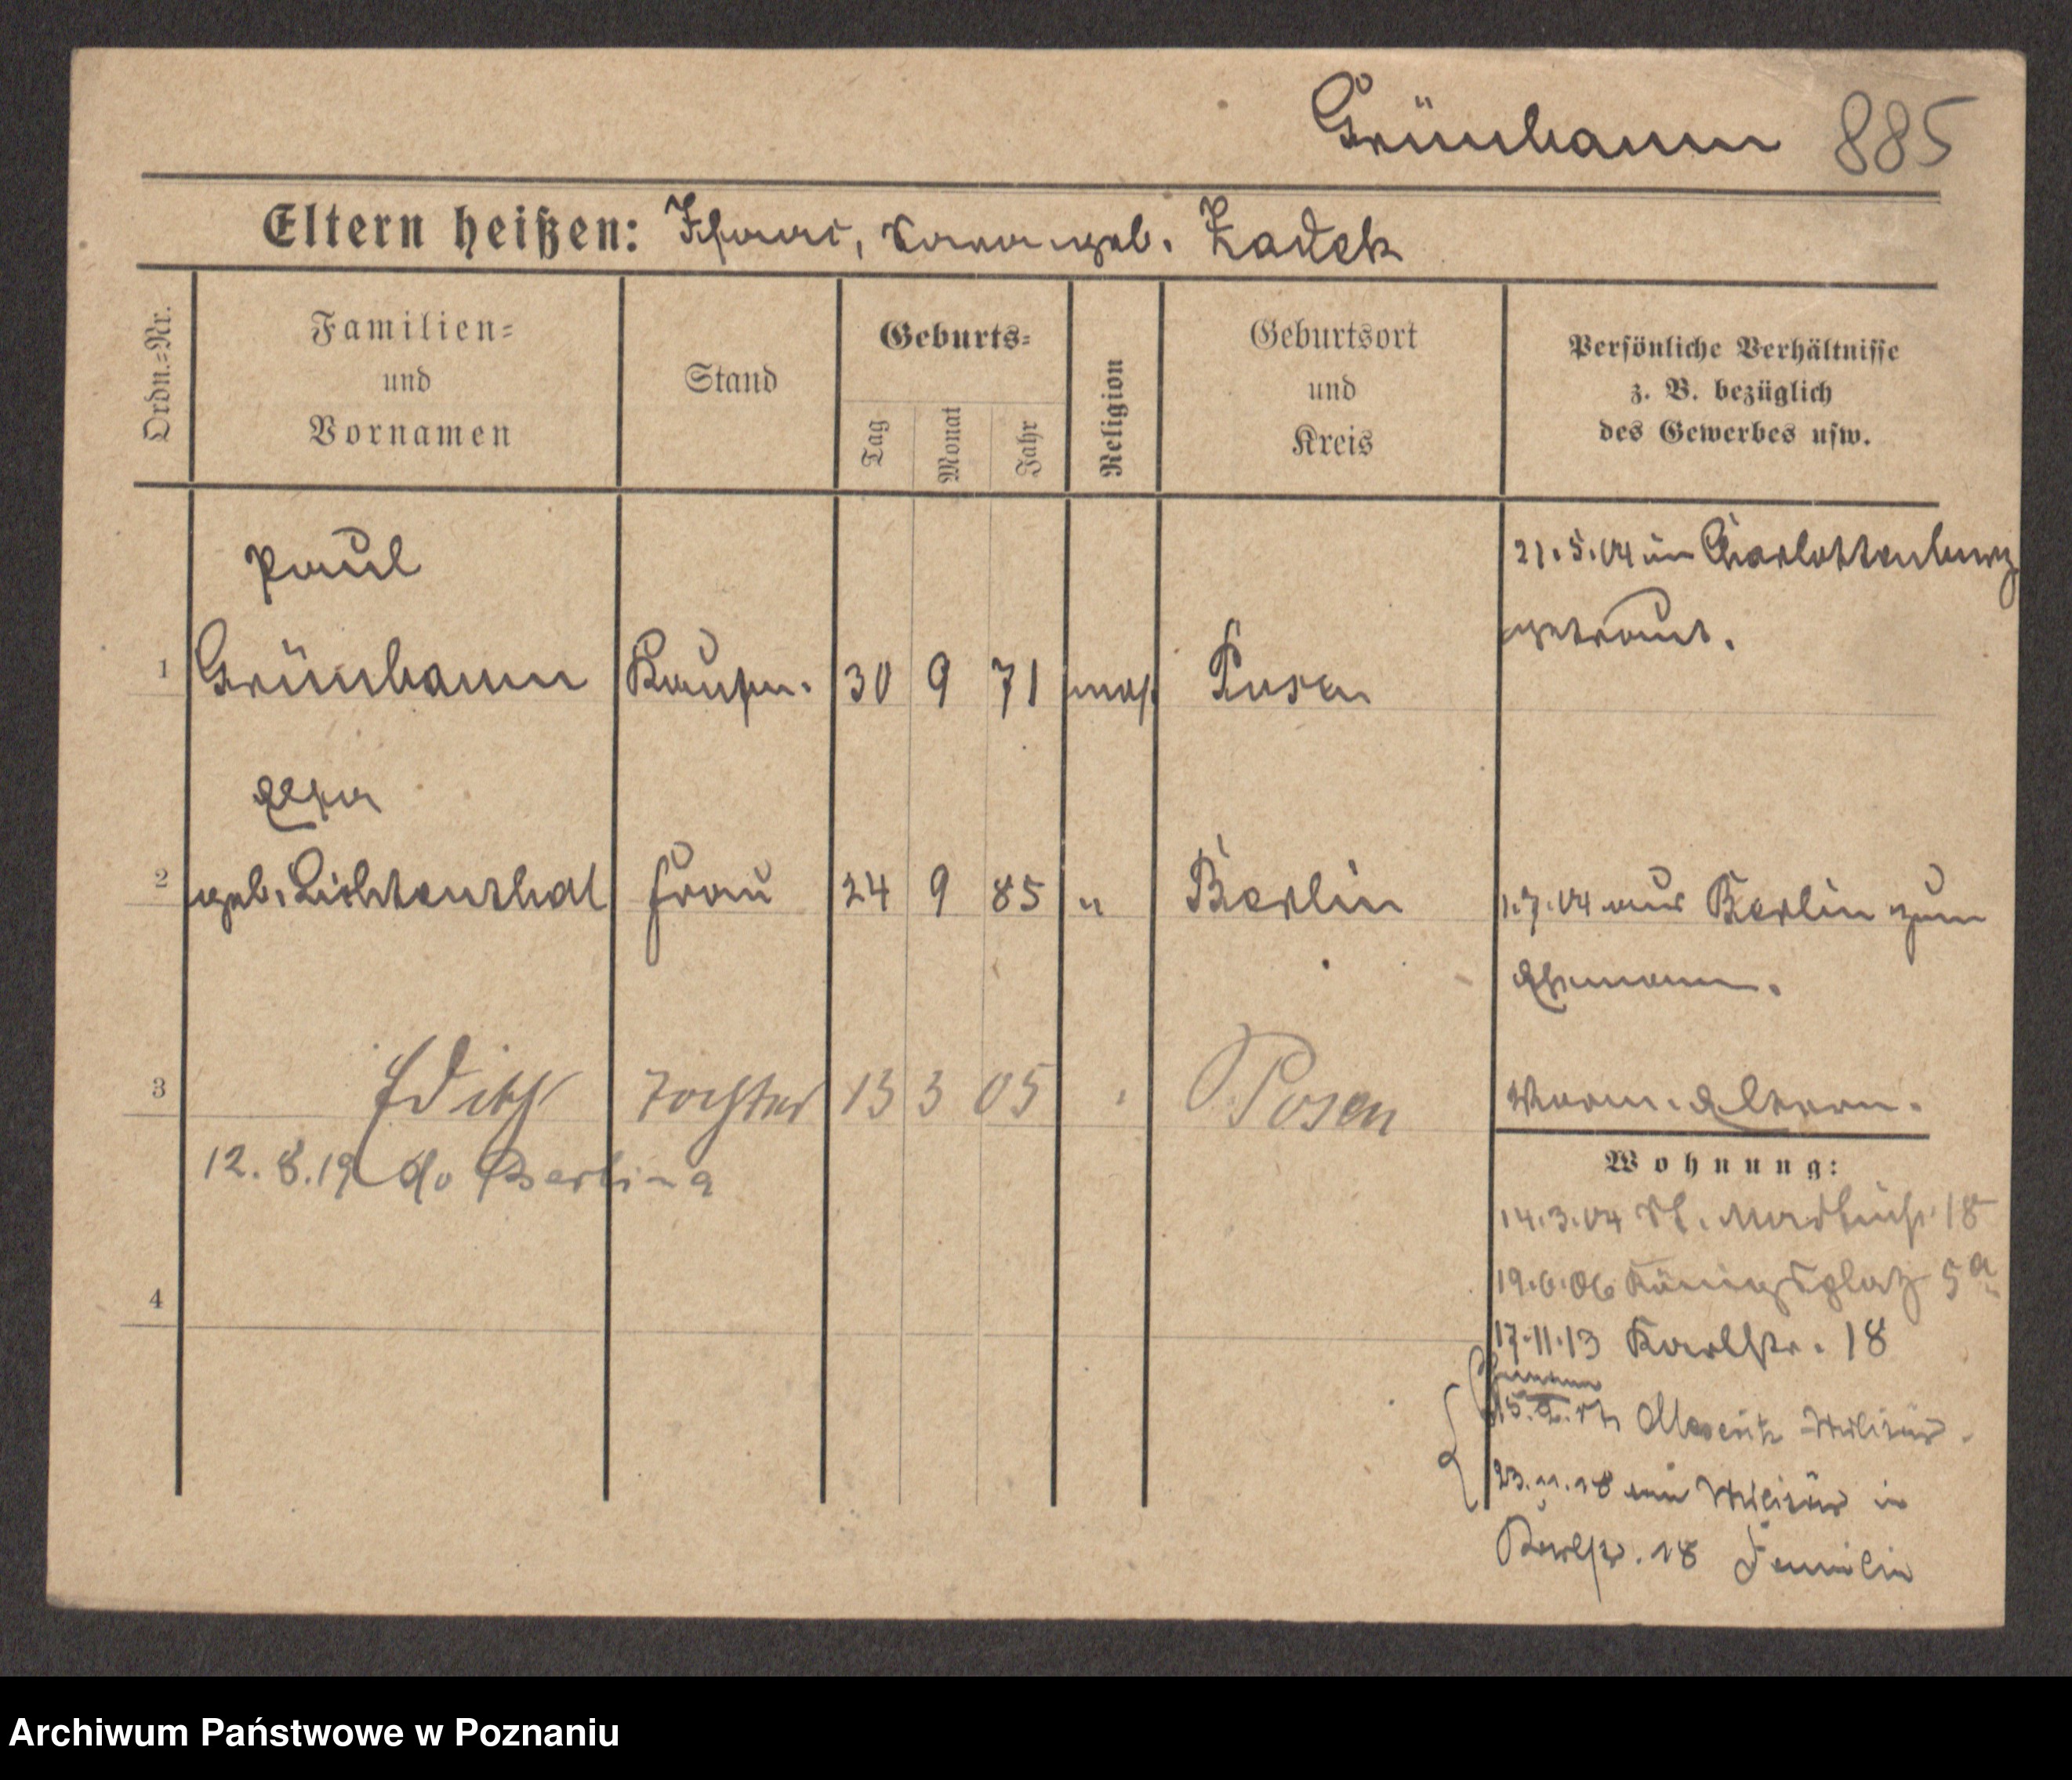 Grünbaum 885
Eltern heißen: Isaac, Sara geb. Zadek
Ordn.=Nr.
Familien=
und
Vornamen
Stand
Geburts=
Tag
Monat
Jahr
Religion
Geburtsort
und
Kreis
Persönliche Verhältnisse
z. B. bezüglich
des Gewerbes usw.
Paul
1 Grünbaum Kaufm. 30 9 71 mos. Posen
21.5.04 in Charlottenburg
getraut.
Elsa
2 geb. Lichtenthal Frau 24 9 85 " Berlin
1.7.04 aus Berlin zum
Ehemann.
3 Edith Tochter 13 3 05 " Posen
Verm. Eltern.
12.8.19 Berlin
4
Wohnung:
14.3.04 18
19.6.06 Königsplatz 5a
17.11.13 Karlstr. 18
Militär.
23.11.18 vom Militär in
Karlstr. 18 Familie
Archiwum Państwowe w Poznaniu